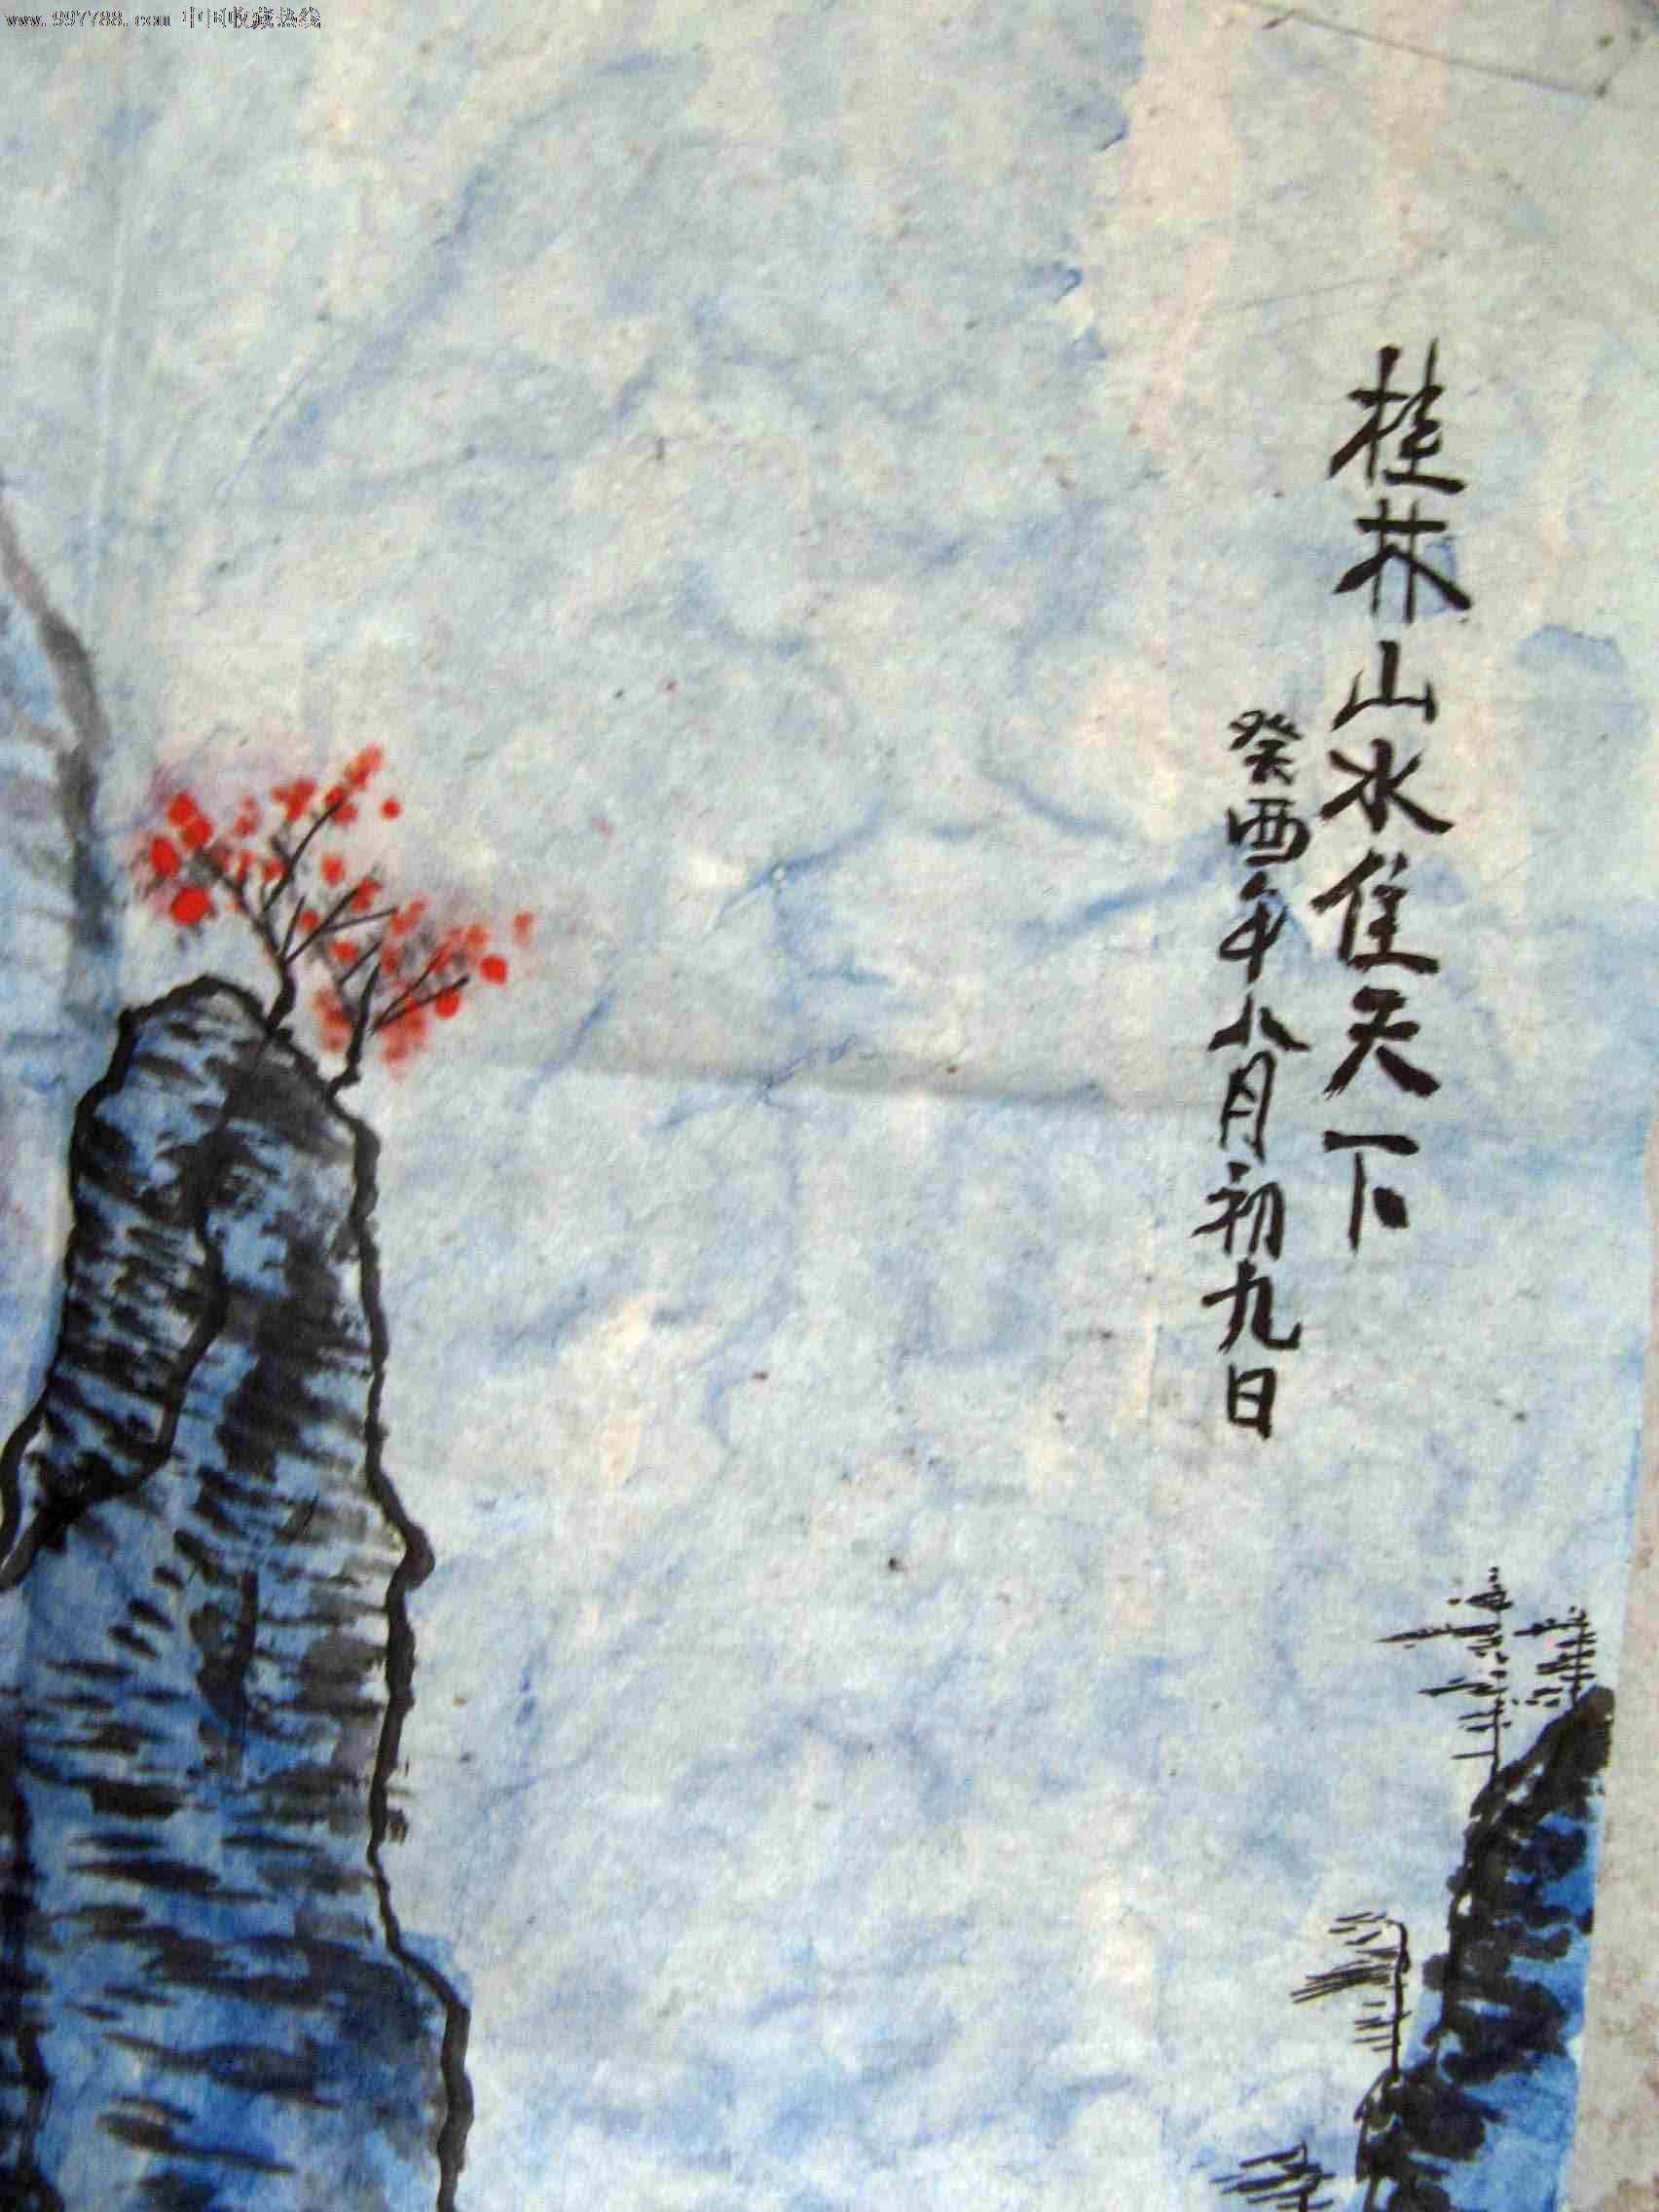 www.997788.com 中国收藏热线
桂林山水佳天下
癸酉年八月初九日